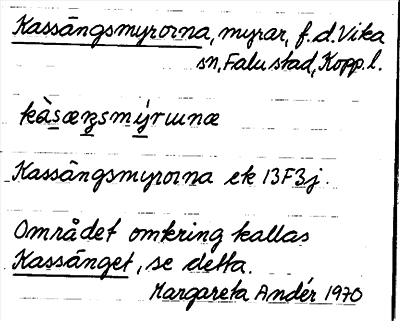 Kassängsmyrorna, myrar, f.d. Vika
sn, Falu stad, Kopp.l.
kàsæŋsmýrɯnæ
Kassängsmyrorna ek 13F3j.
Området omkring kallas
Kassänget, se detta.
Margareta Andér 1970